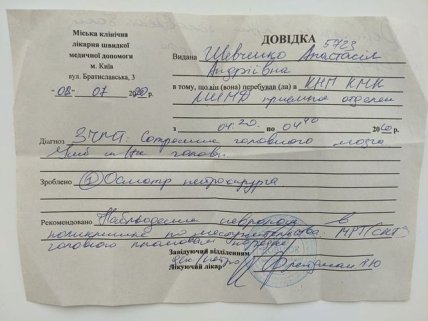 Міська клінічна
лікарня швидкої
медичної допомоги
м. Київ
вул. Братиславська, 3
"08" 07 2020 р.
ДОВІДКА
5723
Видана Шевченко Анастасія
Андріївна
в тому, що він (вона) перебував (ла) в КНП КМК
ЛШМД приемное отделен
з 04.20 по 04 40 2020 р.
Діагноз ЗЧМТ. Сотрясение головного мозга
головы.
Зроблено Осмотр нейрохирурга
Рекомендовано Наблюдение невролога в
поликлинике по месту жительства. МРТ/СКТ
головного
Завідуючий відділенням
Лікуючий лікар